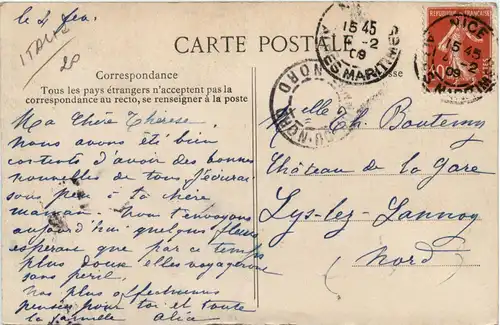 le 4 fev.
ITALIE
28
CARTE POSTALE
Correspondance
Tous les pays étrangers n'acceptent pas la
correspondance au recto, se renseigner à la poste
esse
Ma chère Thérèse.
Nous avons été bien
contents d'avoir des bonnes
nouvelles de tous. J'écrirai
sous peu à ta chère
maman. Nous t'envoyons
aujourd'hui quelques fleurs
espérant que par ce temps
plus doux elles voyageront
sans péril.
Nos plus affectueuses
pensées pour toi et toute
la famille Alice
Melle Th. Bouteny
Château de la Gare
Lys-lez-Lannoy
(Nord)
15 45
-2
09
ALPES MARITIMES
NICE
15 45
-2
09
NORD
RÉPUBLIQUE FRANÇAISE
10